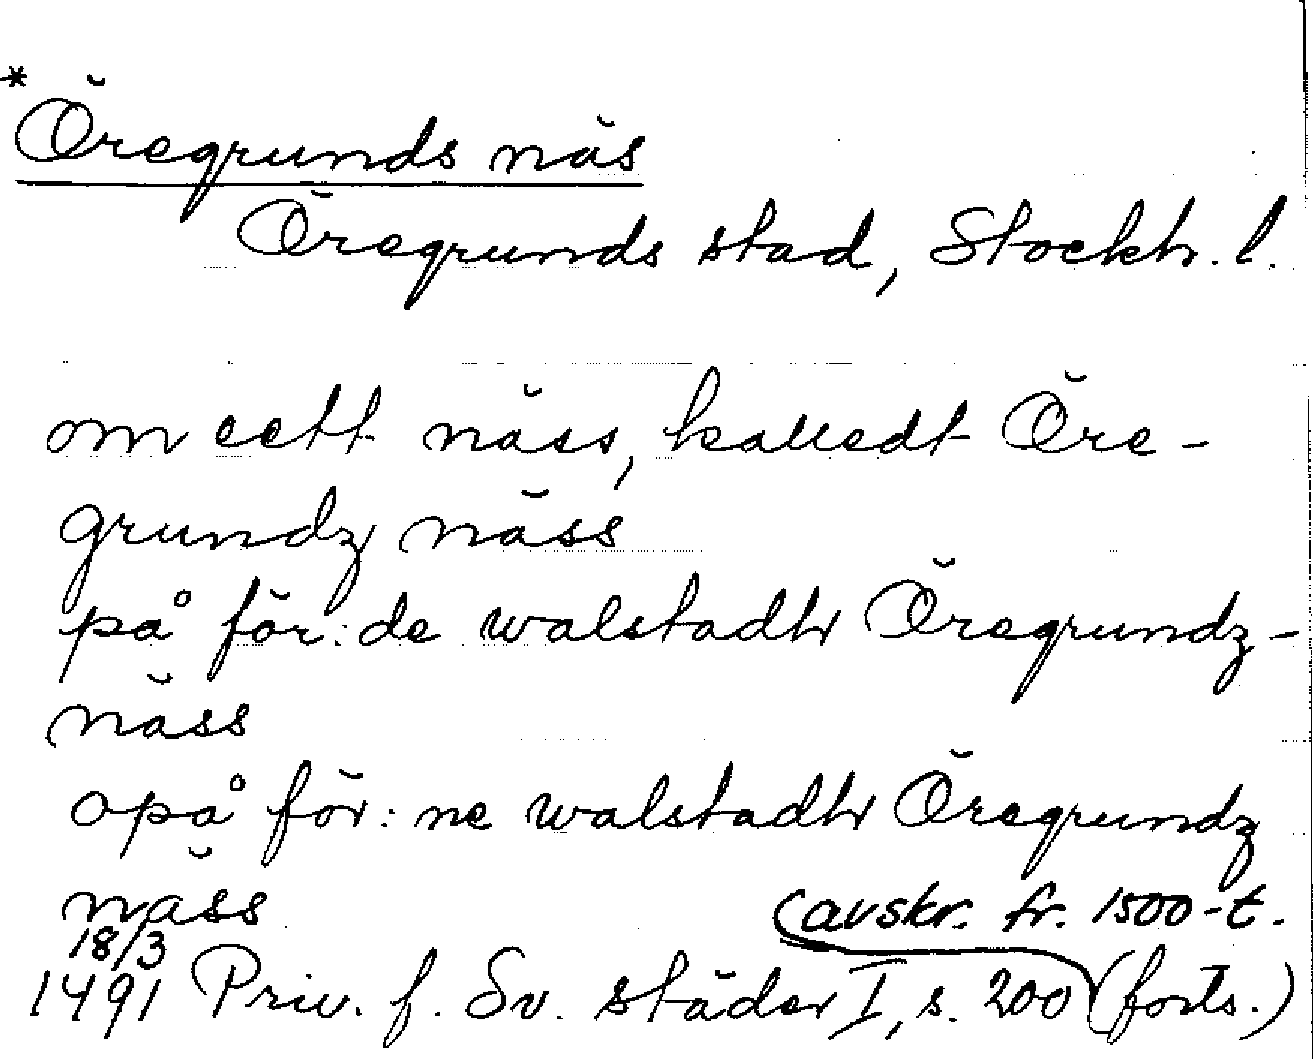 *Öregrunds näs
Öregrunds stad, Stockh. l.
om eett näss, kalledt Öre-
grundz näss
på för: de walstadh Öregrundz-
näss
opå för: ne walstadh Öregrundz
näss
(avskr. fr. 1500-t.
18/3
1491 Priv. f. Sv. städer I, s. 200 (forts.)